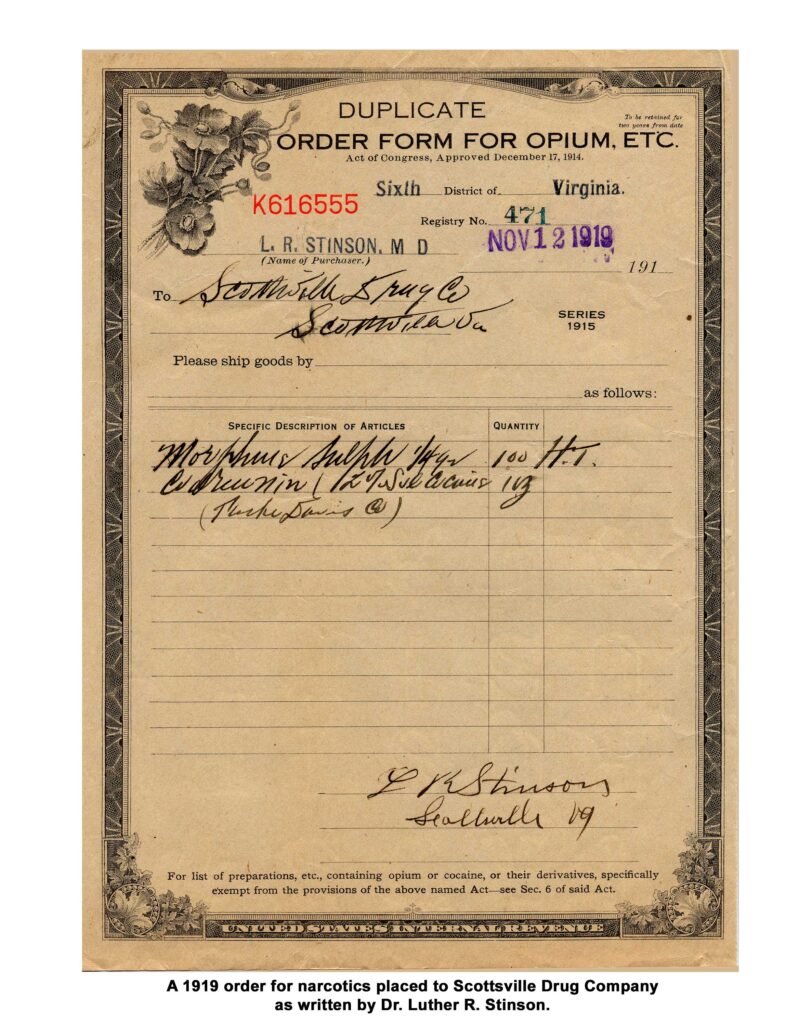 DUPLICATE
To be retained for
two years from date
ORDER FORM FOR OPIUM, ETC.
Act of Congress, Approved December 17, 1914.
Sixth District of Virginia.
K616555
Registry No. 471
L. R. STINSON, M D
NOV 12 1919
(Name of Purchaser.)
191
To Scottsville Drug Co
Scottsville Va
SERIES
1915
Please ship goods by
as follows:
SPECIFIC DESCRIPTION OF ARTICLES QUANTITY
Morphine Sulph 1/4 gr 100 H.T.
(Parke Davis Co)
L R Stinson
Scottsville Va
For list of preparations, etc., containing opium or cocaine, or their derivatives, specifically
exempt from the provisions of the above named Act—see Sec. 6 of said Act.
UNITED STATES INTERNAL REVENUE
A 1919 order for narcotics placed to Scottsville Drug Company
as written by Dr. Luther R. Stinson.